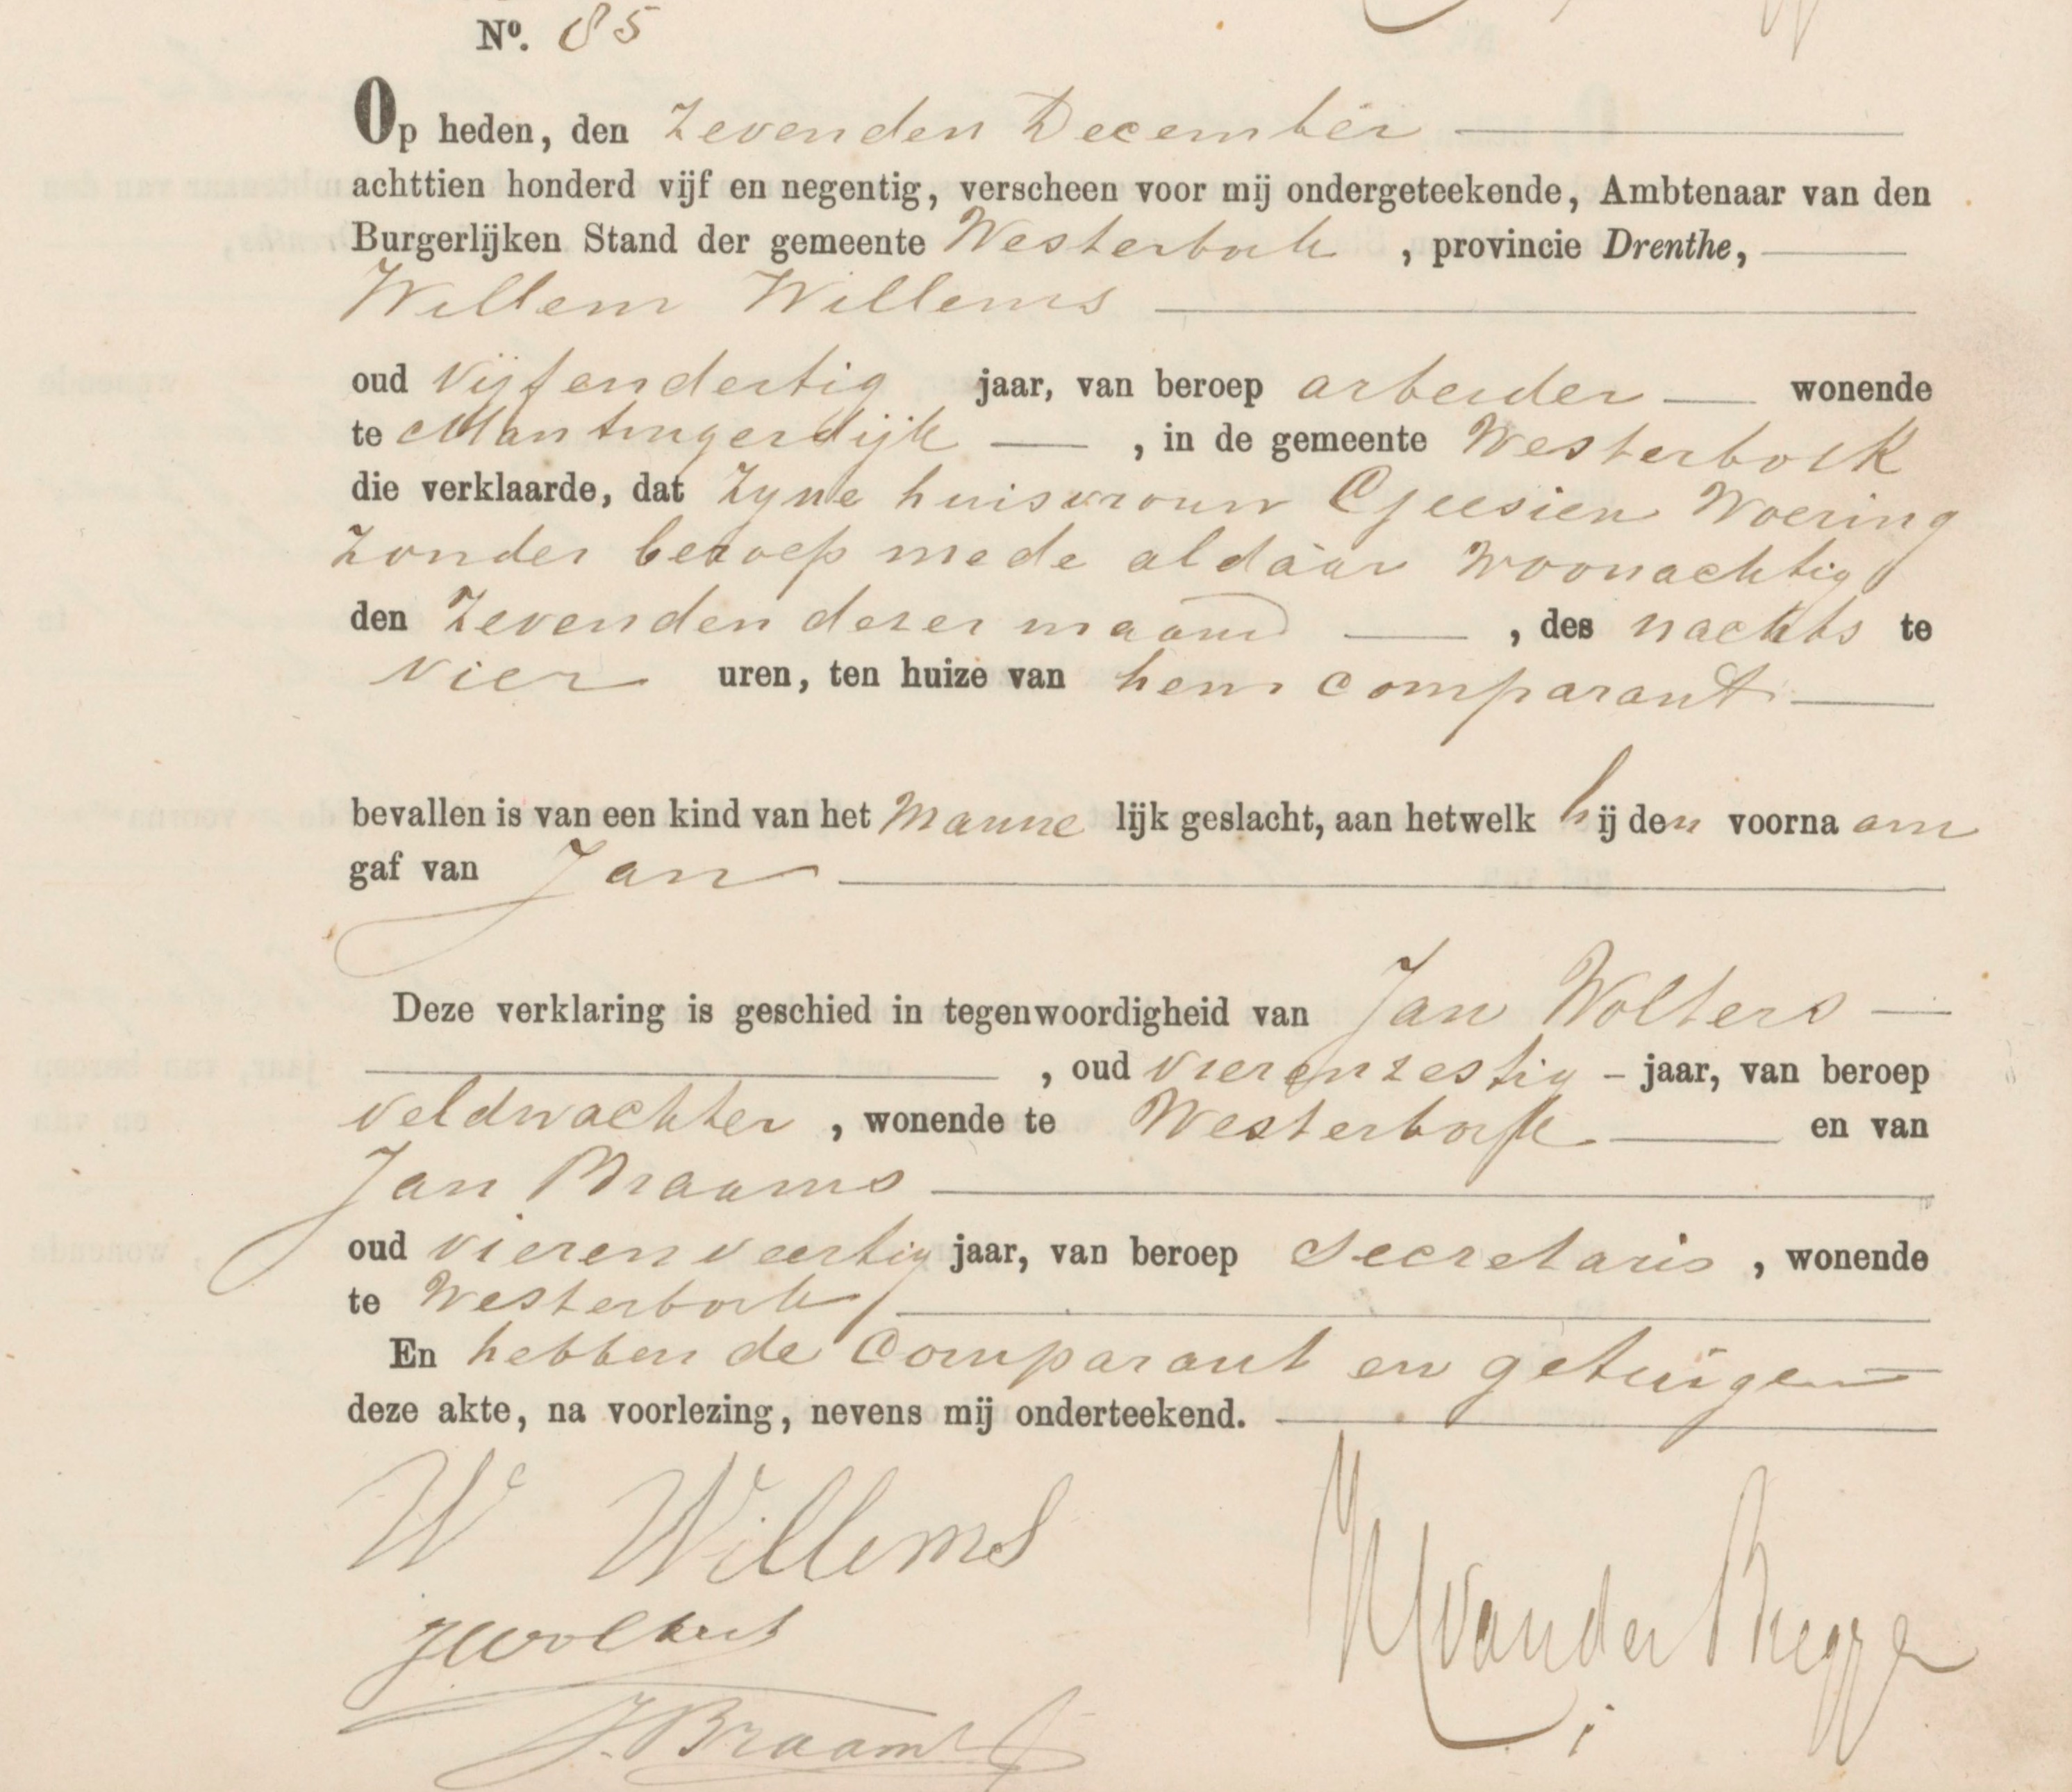 Nº. 85
Op heden, den Zevenden December
achttien honderd vijf en negentig, verscheen voor mij ondergeteekende, Ambtenaar van den
Burgerlijken Stand der gemeente Westerbork, provincie Drenthe,
Willem Willems
oud vijfendertig jaar, van beroep arbeider wonende
te Mantingerdijk, in de gemeente Westerbork
die verklaarde, dat Zyne huisvrouw Geesien Woering
Zonder beroep mede aldaar woonachtig
den Zevenden dezer maand, des nachts te
vier uren, ten huize van hem comparant
bevallen is van een kind van het Mannelijk geslacht, aan hetwelk hij den voornaam
gaf van Jan
Deze verklaring is geschied in tegenwoordigheid van Jan Wolters
, oud vierenzestig jaar, van beroep
veldwachter, wonende te Westerbork en van
Jan Braams
oud vierenveertig jaar, van beroep secretaris, wonende
te Westerbork
En hebben de Comparant en getuigen
deze akte, na voorlezing, nevens mij onderteekend.
W Willems
JWolters
van der Brugge
J. Braams